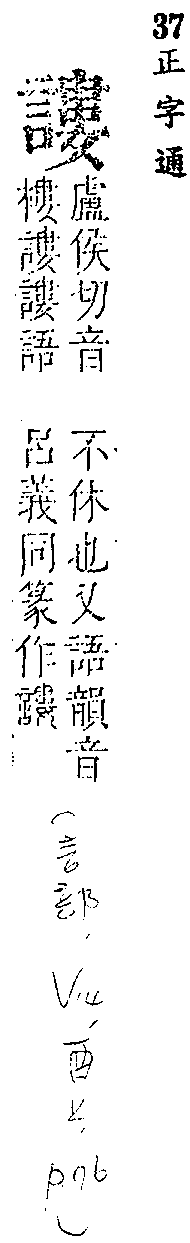 37 正字通
謱
盧侯切音
樓謱謱語
不休也又語韻音
呂義同篆作謱
(言部, V.14, 酉上, p.76)